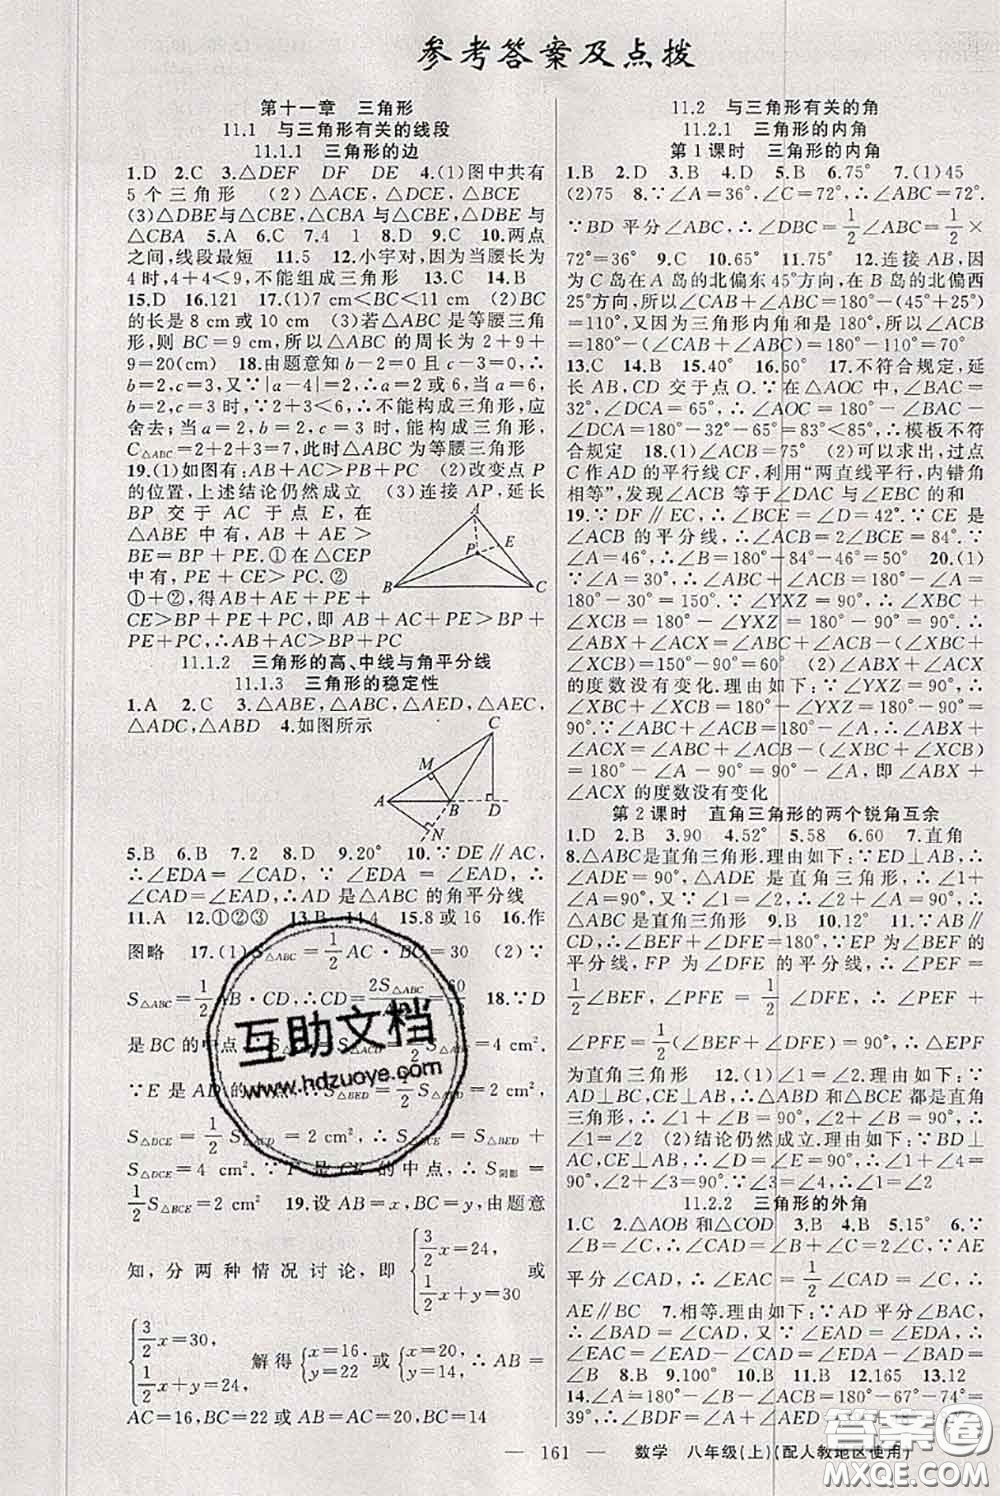 参考答案及点拨
第十一章 三角形
11.1 与三角形有关的线段
11.1.1 三角形的边
1.D 2.C 3.△DEF DF DE 4.(1)图中共有
5个三角形 (2)△ACE,△DCE,△BCE
(3)△DBE与△CBE,△DBE与△CBA,△DBE与
△CBA 5.A 6.C 7.4 1 8.D 9.C 10.两点
之间,线段最短 11.5 12.小宇对,因为当腰长为
4时,4+4<9,不能组成三角形 13.C 14.B
15.D 16.121 17.(1)7 cm<BC<11 cm (2)BC
的长是8 cm或10 cm (3)若△ABC是等腰三角
形,则BC=9 cm,所以△ABC的周长为2+9+
9=20(cm) 18.由题意知b-2=0且c-3=0,∴
b=2,c=3,又∵|a-4|=2,∴a=6或2,当a=6,
b=2,c=3时,∵2+3<6,∴不能构成三角形,应
舍去;当a=2,b=2,c=3时,能构成三角形,
C△ABC=2+2+3=7,此时△ABC为等腰三角形
19.(1)如图有:AB+AC>PB+PC (2)改变点P
的位置,上述结论仍然成立 (3)连接AP,延长
BP交于AC于点E,在
△ABE中有,AB+AE>
BE=BP+PE.①在△CEP
中有,PE+CE>PC.②
①+②,得AB+AE+PE+
CE>BP+PE+PC,即AB+AC+PE>BP+
PE+PC,∴AB+AC>BP+PC
A
P
E
B
C
11.1.2 三角形的高、中线与角平分线
11.1.3 三角形的稳定性
1.A 2.C 3.△ABE,△ABC,△AED,△AEC,
△ADC,△ABD 4.如图所示
C
M
A
B
D
N
5.B 6.B 7.2 8.D 9.20° 10.∵DE∥AC,
∴∠EDA=∠CAD,∵∠EDA=∠EAD,∴
∠CAD=∠EAD,∴AD是△ABC的角平分线
11.A 12.①②③ 13.B 14.4 15.8或16 16.作
图略 17.(1)S△ABC=1/2 AC·BC=30 (2)∵
S△ABC=1/2 AB·CD,∴CD=2S△ABC 60 18.∵D
是BC的中点 =4 cm²,
∵E是AD的 S△BED=1/2 S△ABD=2 cm²,
S△DCE=1/2 S△ACD=2 cm²,∴S△BCE=S△BED+
S△DCE=4 cm².∵F是CE的中点,∴S阴影=
1/2 S△BCE=2 cm² 19.设AB=x,BC=y,由题意
知,分两种情况讨论,即{3/2 x=24, 1/2 x+y=30或
{3/2 x=30, 1/2 x+y=24,解得{x=16, y=22或{x=20, y=14,∴AB=
AC=16,BC=22或AB=AC=20,BC=14
11.2 与三角形有关的角
11.2.1 三角形的内角
第1课时 三角形的内角
1.B 2.D 3.B 4.D 5.B 6.75° 7.(1)45
(2)75 8.∵∠A=36°,∠C=72°,∴∠ABC=72°.
∵BD平分∠ABC,∴∠DBC=1/2∠ABC=1/2×
72°=36° 9.C 10.65° 11.75° 12.连接AB,因
为C岛在A岛的北偏东45°方向,在B岛的北偏西
25°方向,所以∠CAB+∠ABC=180°-(45°+25°)
=110°,又因为三角形内角和是180°,所以∠ACB
=180°-(∠CAB+∠ABC)=180°-110°=70°
13.C 14.B 15.40° 16.60° 17.不符合规定,延
长AB,CD交于点O.∵在△AOC中,∠BAC=
32°,∠DCA=65°,∴∠AOC=180°-∠BAC-
∠DCA=180°-32°-65°=83°<85°,∴模板不符
合规定 18.(1)∠ACB=75° (2)可以求出,过点
C作AD的平行线CF,利用“两直线平行,内错角
相等”,发现∠ACB等于∠DAC与∠EBC的和
19.∵DF∥EC,∴∠BCE=∠D=42°.∵CE是
∠ACB的平分线,∴∠ACB=2∠BCE=84°.∵
∠A=46°,∴∠B=180°-84°-46°=50° 20.(1)
∵∠A=30°,∴∠ABC+∠ACB=180°-∠A=
180°-30°=150°.∵∠YXZ=90°,∴∠XBC+
∠XCB=180°-∠YXZ=180°-90°=90°,∴
∠ABX+∠ACX=∠ABC+∠ACB-(∠XBC+
∠XCB)=150°-90°=60° (2)∠ABX+∠ACX
的度数没有变化.理由如下:∵∠YXZ=90°,∴
∠XBC+∠XCB=180°-∠YXZ=180°-90°=
90°.∵∠ABC+∠ACB=180°-∠A,∴∠ABX+
∠ACX=∠ABC+∠ACB-(∠XBC+∠XCB)
=180°-∠A-90°=90°-∠A,即∠ABX+
∠ACX的度数没有变化
第2课时 直角三角形的两个锐角互余
1.D 2.B 3.90 4.52° 5.58 6.60 7.直角
8.△ABC是直角三角形.理由如下:∵ED⊥AB,∴
∠ADE=90°,△ADE是直角三角形,∴∠1+
∠A=90°.又∵∠1=∠2,∴∠2+∠A=90°,∴
△ABC是直角三角形 9.B 10.12° 11.∵AB∥
CD,∴∠BEF+∠DFE=180°,∵EP为∠BEF的
平分线,FP为∠DFE的平分线,∴∠PEF=
1/2∠BEF,∠PFE=1/2∠DFE,∴∠PEF+
∠PFE=1/2(∠BEF+∠DFE)=90°,∴△EPF
为直角三角形 12.(1)∠1=∠2.理由如下:∵
AD⊥BC,CE⊥AB,∴△ABD和△BCE都是直角
三角形,∴∠1+∠B=90°,∠2+∠B=90°,∴
∠1=∠2 (2)结论仍然成立.理由如下:∵BD⊥
AC,CE⊥AB,∴∠D=∠E=90°,∴∠1+∠4=
90°,∠2+∠3=90°,∵∠3=∠4,∴∠1=∠2
11.2.2 三角形的外角
1.C 2.△AOB和△COD 3.B 4.B 5.15° 6.∵
∠B=∠C,∴∠CAD=∠B+∠C=2∠C,∵AE
平分∠CAD,∴∠EAC=1/2∠CAD=∠C,∴
AE∥BC 7.相等.理由如下:∵AD平分∠BAC,∴
∠BAD=∠CAD,又∵∠EAD=∠EDA,∴
∠EAC=∠EAD-∠CAD=∠EDA-∠BAD=
∠B 8.B 9.100° 10.B 11.B 12.165 13.12
14.∠A=180°-∠B-∠ACB=180°-67°-74°=
39°,∴∠BDF=∠A+∠AED
— 161 — 数学 八年级(上)(配人教地区使用)
互助文档
www.hdzuoye.com
答案圈
MXQE.COM